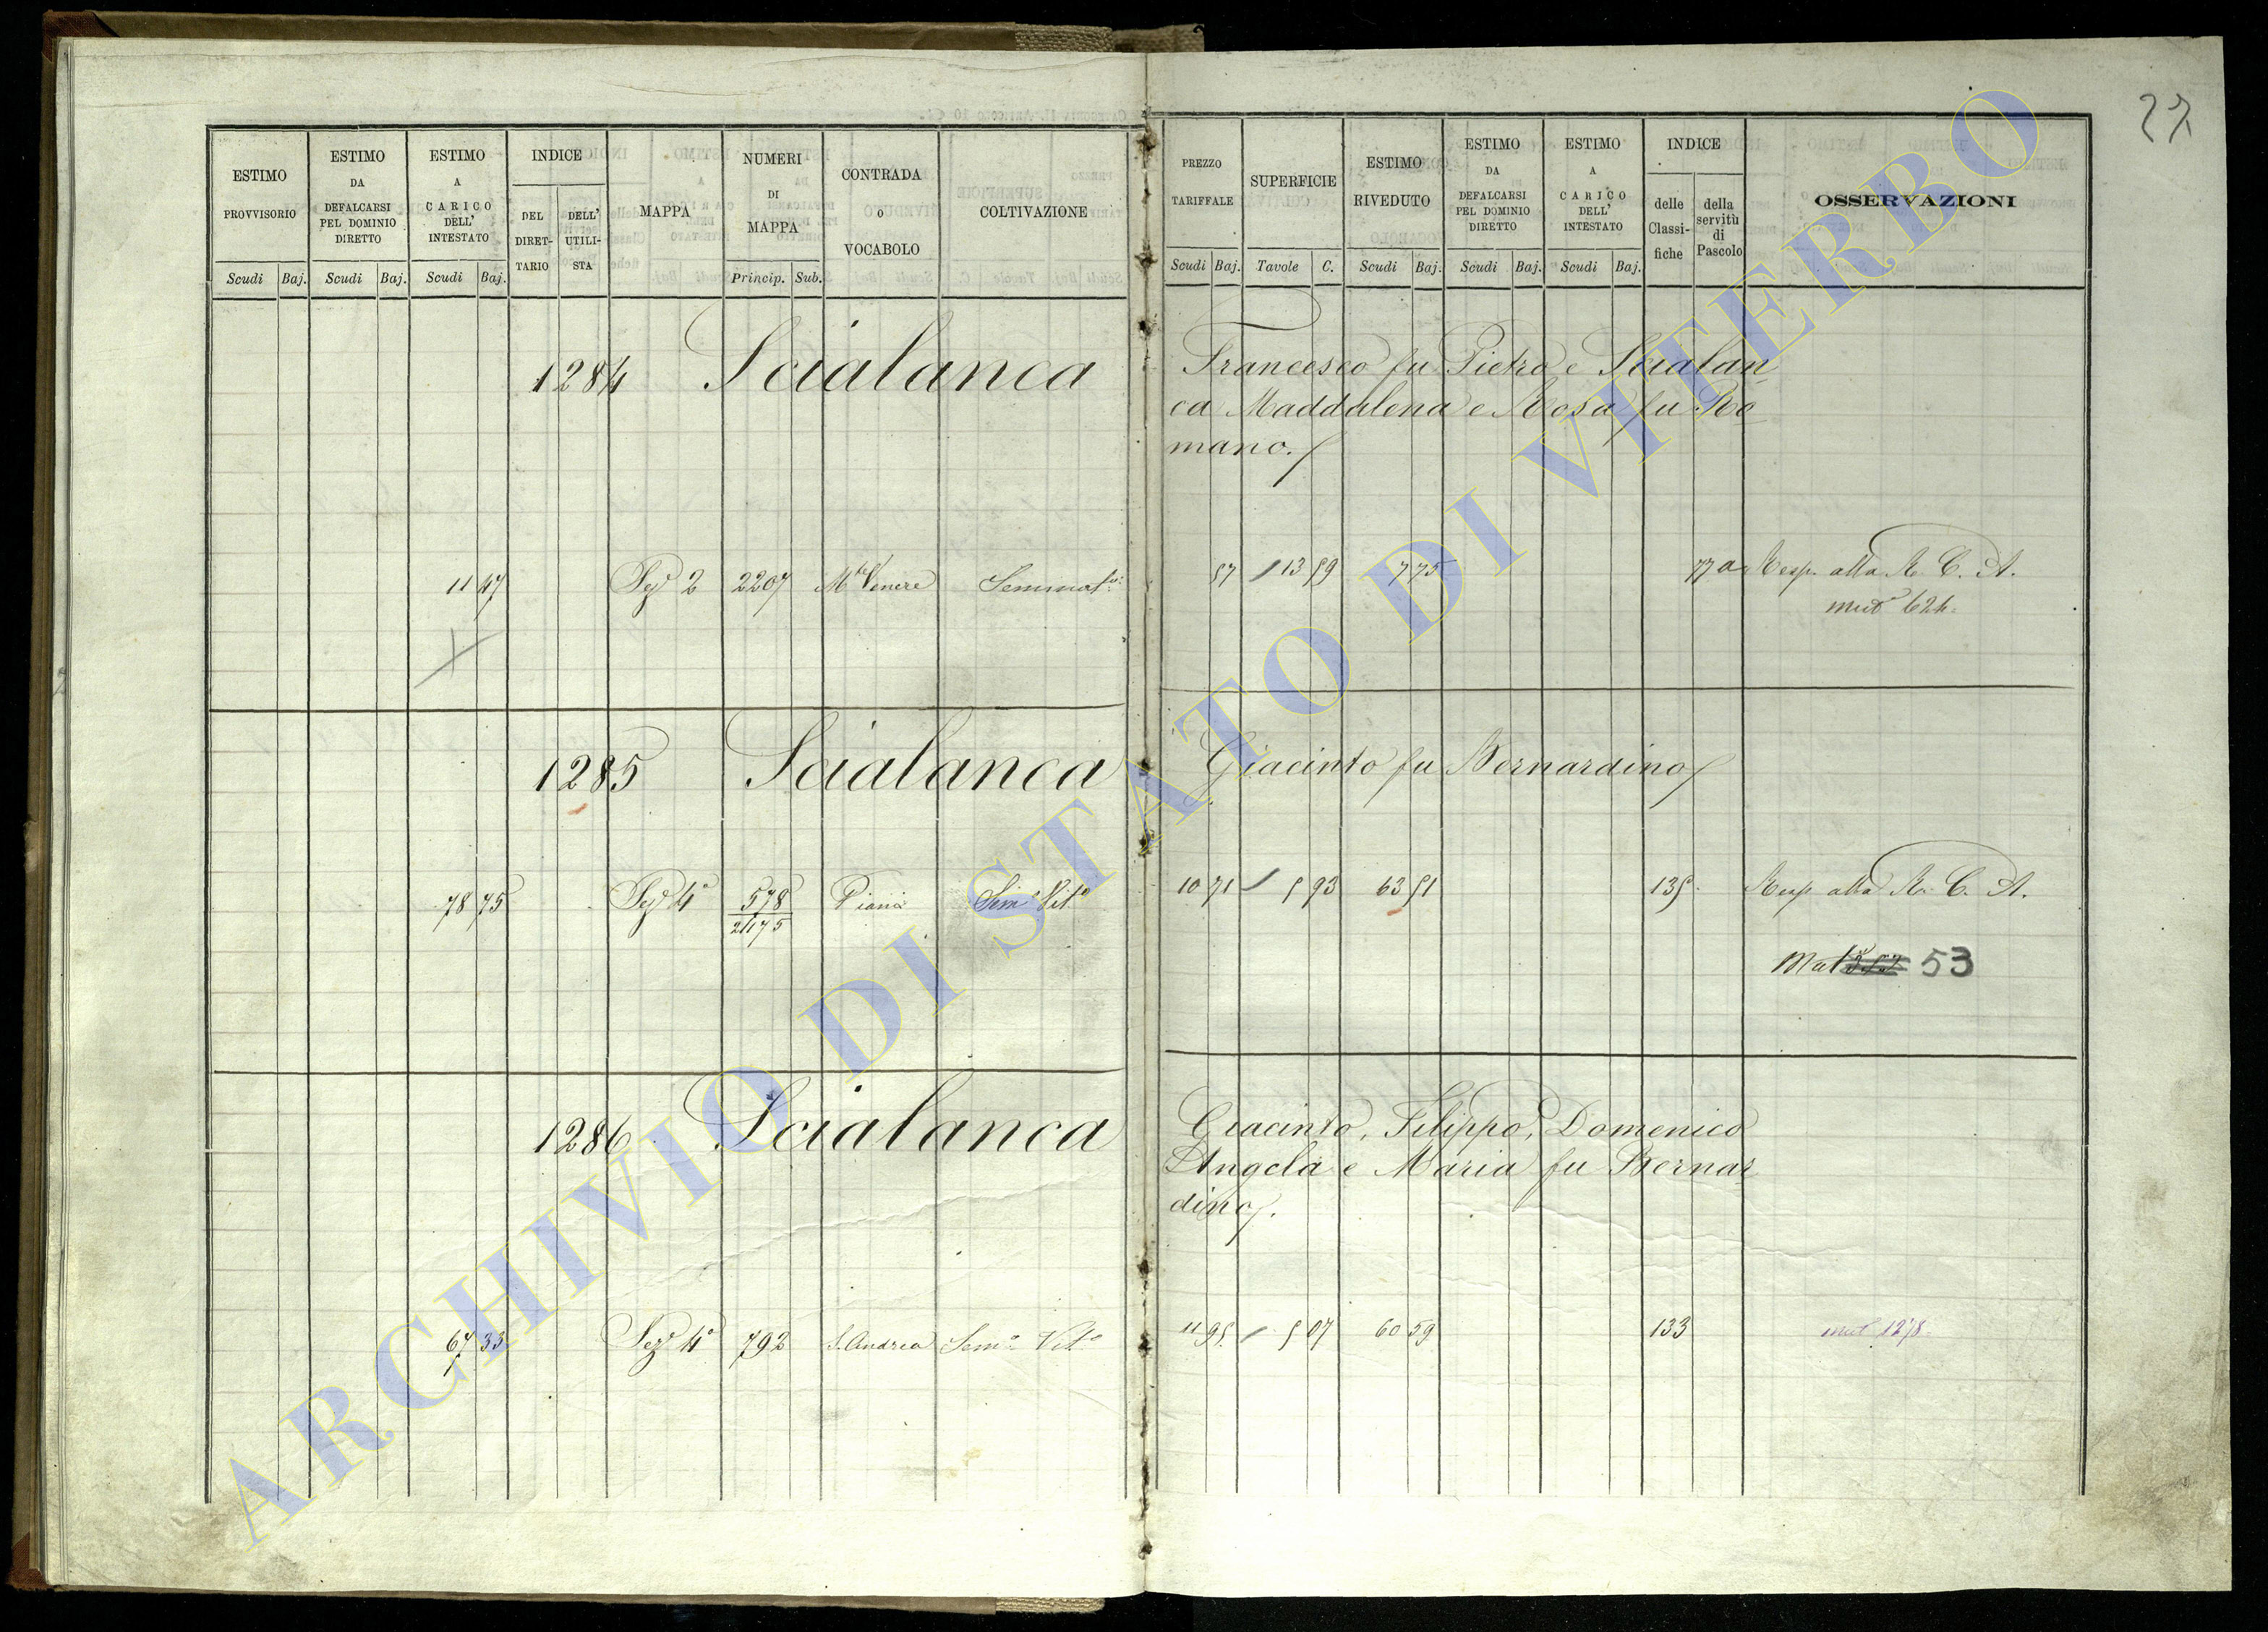 27
ESTIMO PROVVISORIO
ESTIMO DA DEFALCARSI PEL DOMINIO DIRETTO
ESTIMO A CARICO DELL' INTESTATO
INDICE
DEL DIRET-TARIO
DELL' UTILI-STA
MAPPA
NUMERI DI MAPPA
CONTRADA O VOCABOLO
COLTIVAZIONE
Scudi Baj. Scudi Baj. Scudi Baj. Princip. Sub.
PREZZO TARIFFALE
SUPERFICIE
ESTIMO RIVEDUTO
ESTIMO DA DEFALCARSI PEL DOMINIO DIRETTO
ESTIMO A CARICO DELL' INTESTATO
INDICE
delle Classi-fiche
della servitù di Pascolo
OSSERVAZIONI
Scudi Baj. Tavole C. Scudi Baj. Scudi Baj. Scudi Baj.
1284 Scialanca Francesco fu Pietro e Scialan
ca Maddalena e Rosa fu Ro
mano.
11 47 Sez.e 2 2207 M.te Venere Seminat.o 57 13 59 7 75 17 a Resp. alla R. C. A.
mut.e 624
1285 Scialanca Giacinto fu Bernardino
78 75 Sez.e 4a 578 Piana Sem.o Vit.o 10 71 5 93 63 51 135 Resp alla R. C. A.
2175
Mut 53
1286 Scialanca Giacinto, Filippo, Domenico
Angela e Maria fu Bernar
dino.
67 33 Sez.e 4a 792 S. Andrea Sem.o Vit.o 11 95 5 07 60 59 133 mut 1278
ARCHIVIO DI STATO DI VITERBO